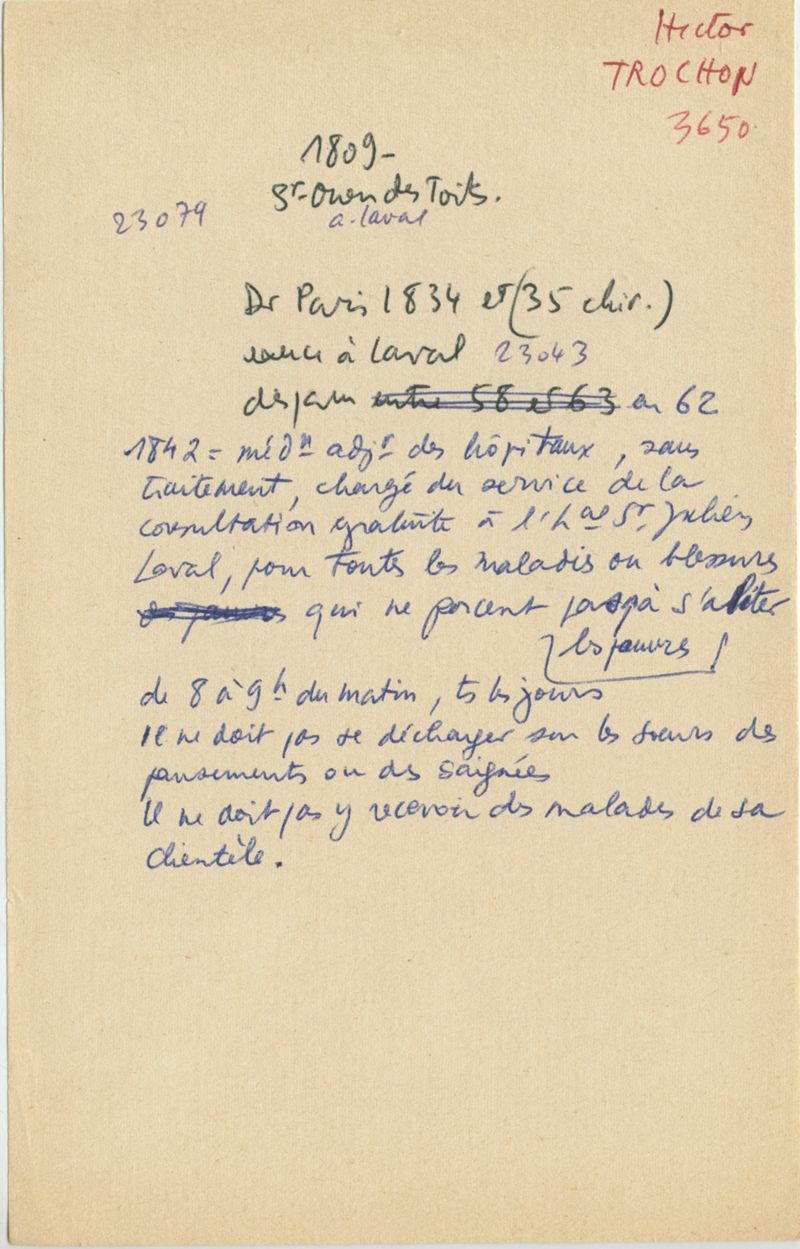 Hector
TROCHON
3650
1809-
St-Ouen des Toits.
23079 a. laval
Dr Paris 1834 et (35 chir.)
exerce à Laval 23043
disparu entre 58 et 63 en 62
1842 = médn adjt des hôpitaux, sans
traitement, chargé du service de la
consultation gratuite à l'Hal St. Julien
Laval, pour toutes les maladies ou blessures
des pauvres qui ne forcent pas à s'aliter
les pauvres
de 8 à 9h du matin, ts les jours
Il ne doit pas se décharger sur les soeurs des
pansements ou des saignées
Il ne doit pas y recevoir des malades de sa
clientèle.